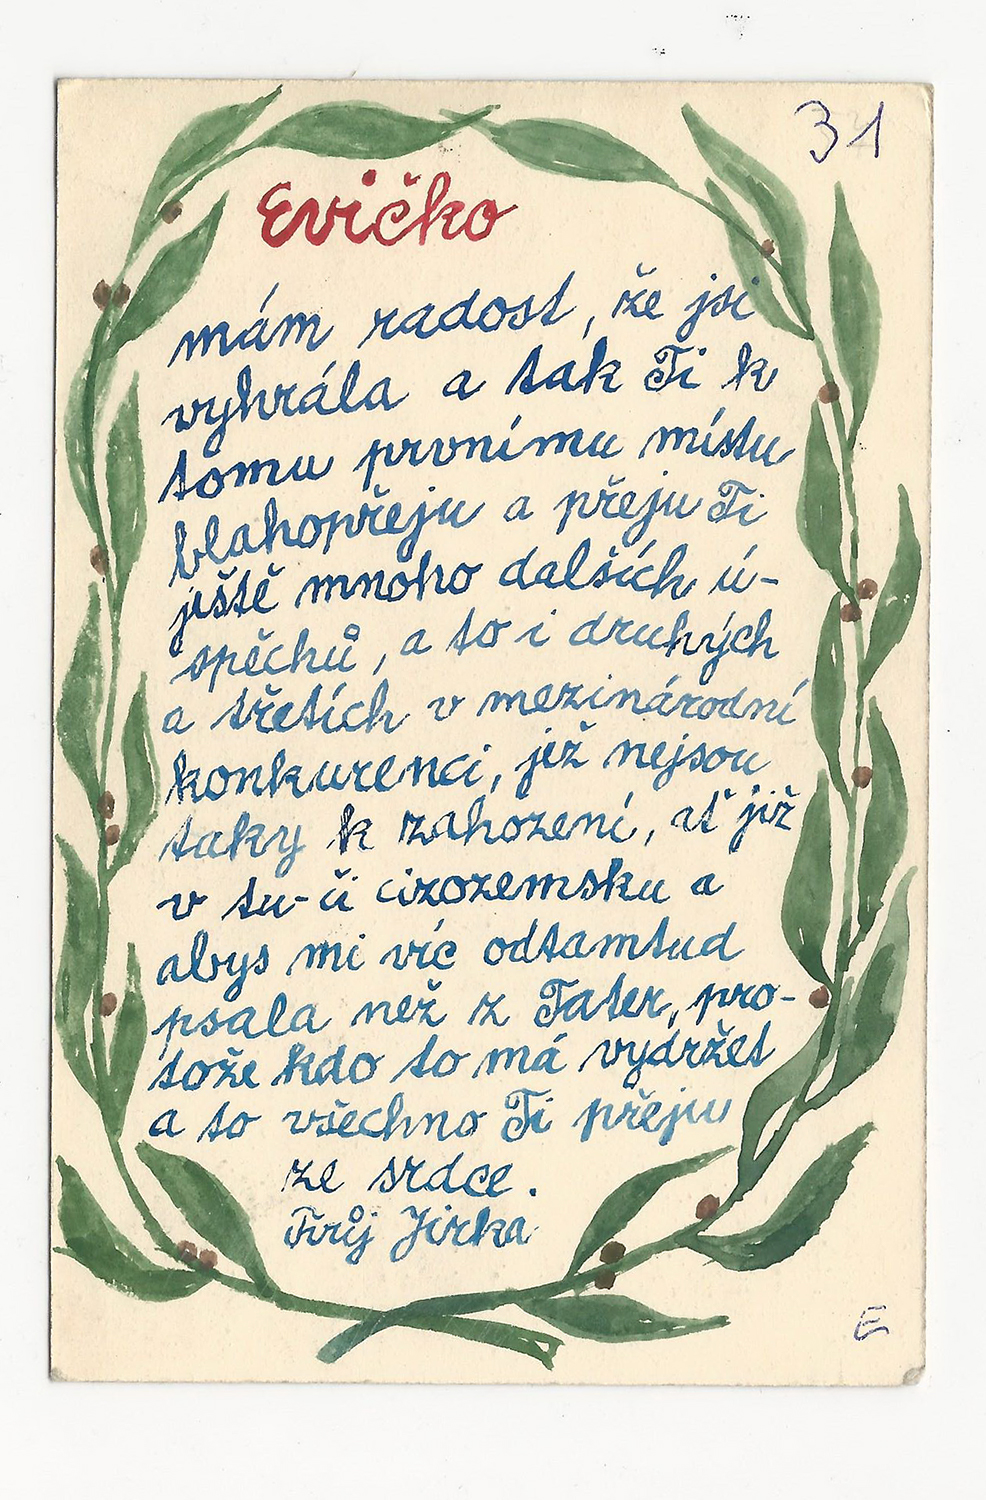 31
Evičko
mám radost, že jsi
vyhrála a tak Ti k
tomu prvnímu místu
blahopřeju a přeju Ti
ještě mnoho dalších ú-
spěchů, a to i druhých
a třetích v mezinárodní
konkurenci, jež nejsou
taky k zahození, ať již
v tu-či cizozemsku a
abys mi víc odtamtud
psala než z Tater, pro-
tože kdo to má vydržet
a to všechno Ti přeju
ze srdce.
Tvůj Jirka
E